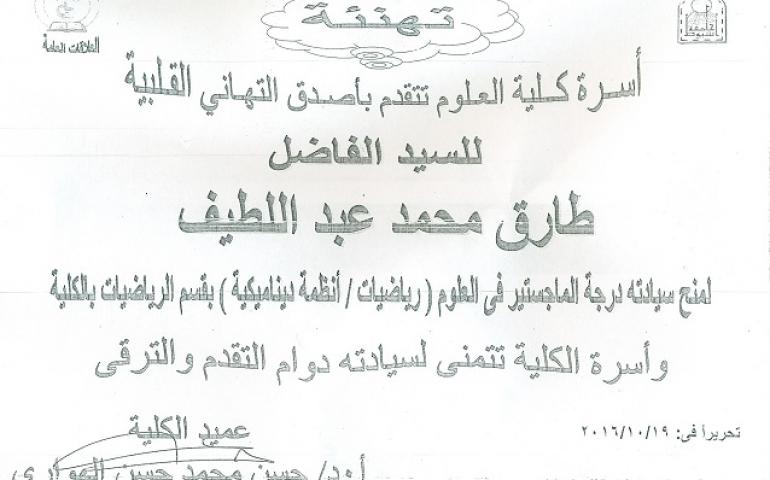 تهنئة
العلاقات العامة
أسرة كلية العلوم تتقدم بأصدق التهاني القلبية
للسيد الفاضل
طارق محمد عبد اللطيف
لمنح سيادته درجة الماجستير فى العلوم ( رياضيات / أنظمة ديناميكية ) بقسم الرياضيات بالكلية
وأسرة الكلية تتمنى لسيادته دوام التقدم والترقى
عميد الكلية
تحريراً فى: ٢٠١٦/١٠/١٩
أ.د/ حسن محمد حسن الهوارى